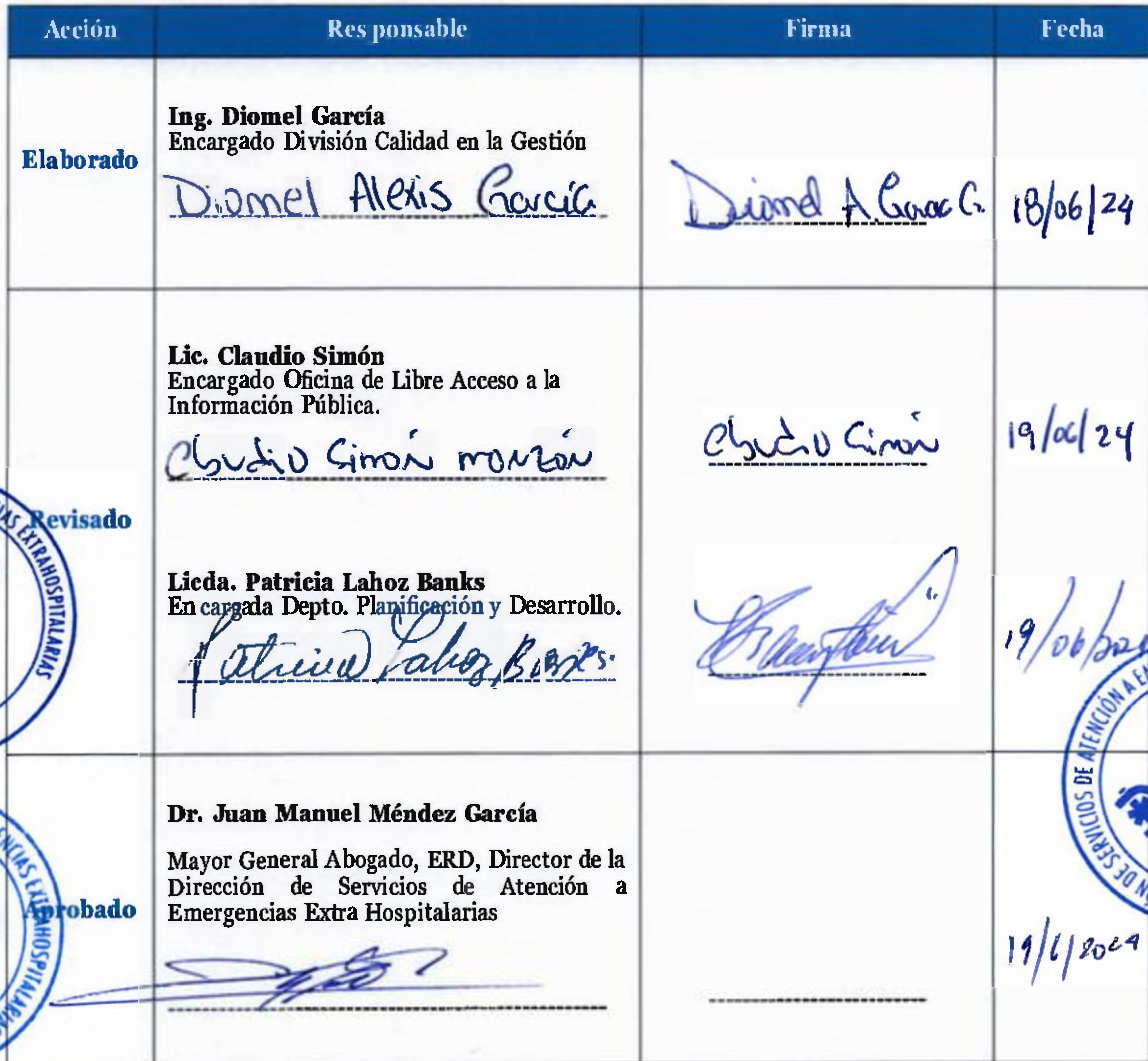 Acción Responsable Firma Fecha
Elaborado
Ing. Diomel García
Encargado División Calidad en la Gestión
Diomel Alexis García
Diomel A. Garcia G.
18/06/24
Revisado
Lic. Claudio Simón
Encargado Oficina de Libre Acceso a la
Información Pública.
Claudio Simón Monzón
Claudio Simón
19/06/24
Licda. Patricia Lahoz Banks
Encargada Depto. Planificación y Desarrollo.
Patricia Lahoz Banks.
19/06/202
Aprobado
Dr. Juan Manuel Méndez García
Mayor General Abogado, ERD, Director de la
Dirección de Servicios de Atención a
Emergencias Extra Hospitalarias
19/6/2024
EXTRAHOSPITALARIAS
DE SERVICIOS DE ATENCIÓN A